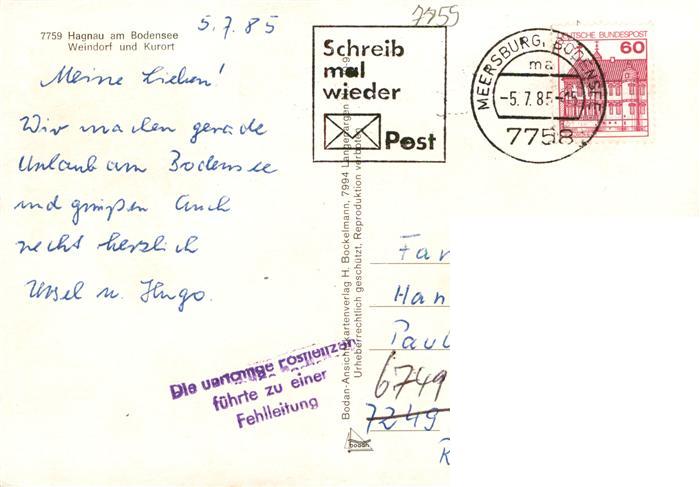 7759 Hagnau am Bodensee
Weindorf und Kurort
5.7.85
Meine Lieben!
Wir machen gerade
Urlaub am Bodensee
und grüßen Euch
recht herzlich
Ursel u. Hugo.
7759
Schreib
mal
wieder
Post
MEERSBURG, BODENSEE
ma
-5.7.85-15
7758
DEUTSCHE BUNDESPOST
60
Bodan-Ansichtskartenverlag H. Bockelmann, 7994 Langenargen
Urheberrechtlich geschützt, Reproduktion verboten
bodan
Fa
Han
Paul
6749
7249
R
Die unrichtige Postleitzahl
führte zu einer
Fehlleitung